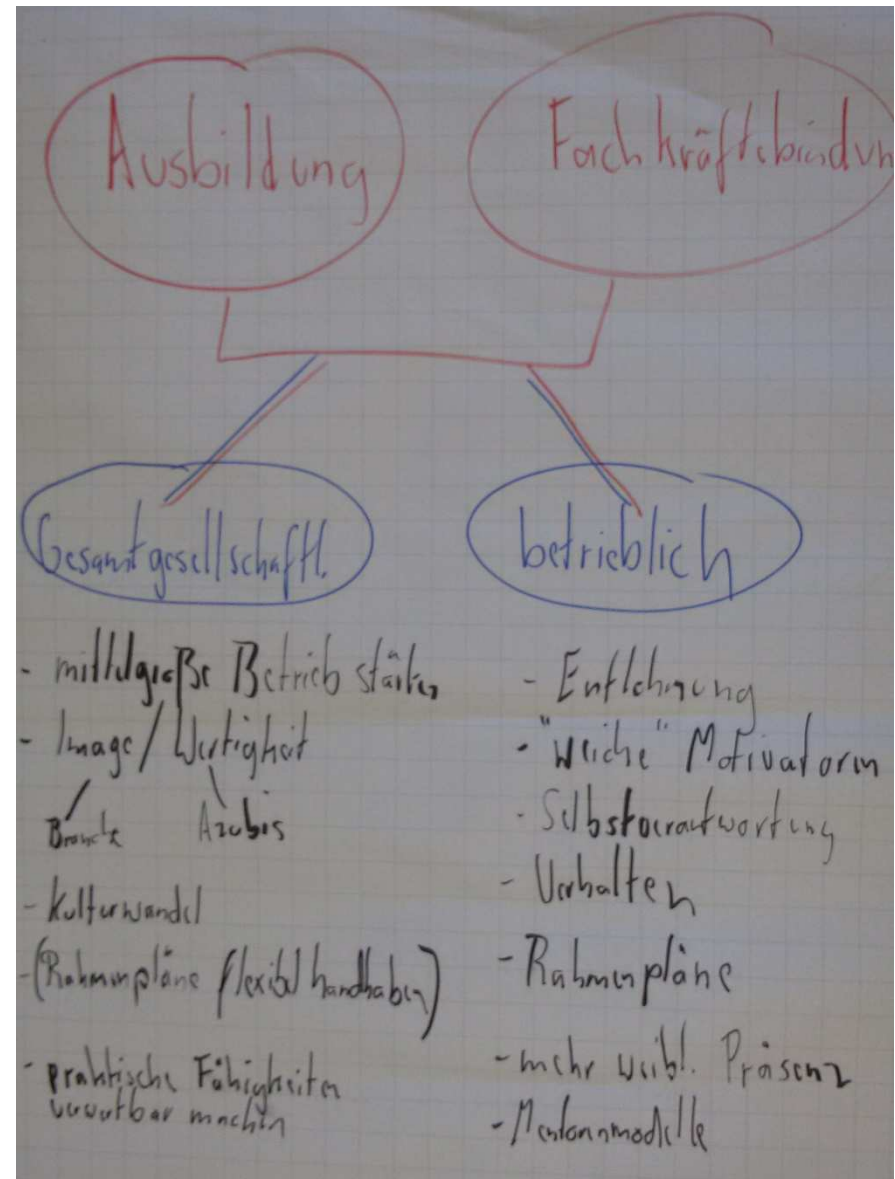 Ausbildung
Fachkräftebindun
Gesamtgesellschaftl.
- mittelgroße Betrieb stärken
- Image / Wertigkeit
Branche Azubis
- Kulturwandel
- (Rahmenpläne flexibel handhaben)
- praktische Fähigkeiten
verwertbar machen
betrieblich
- Entlohnung
- "weiche" Motivatoren
- Selbstverantwortung
- Verhalten
- Rahmenpläne
- mehr weibl. Präsenz
- Mentorenmodelle